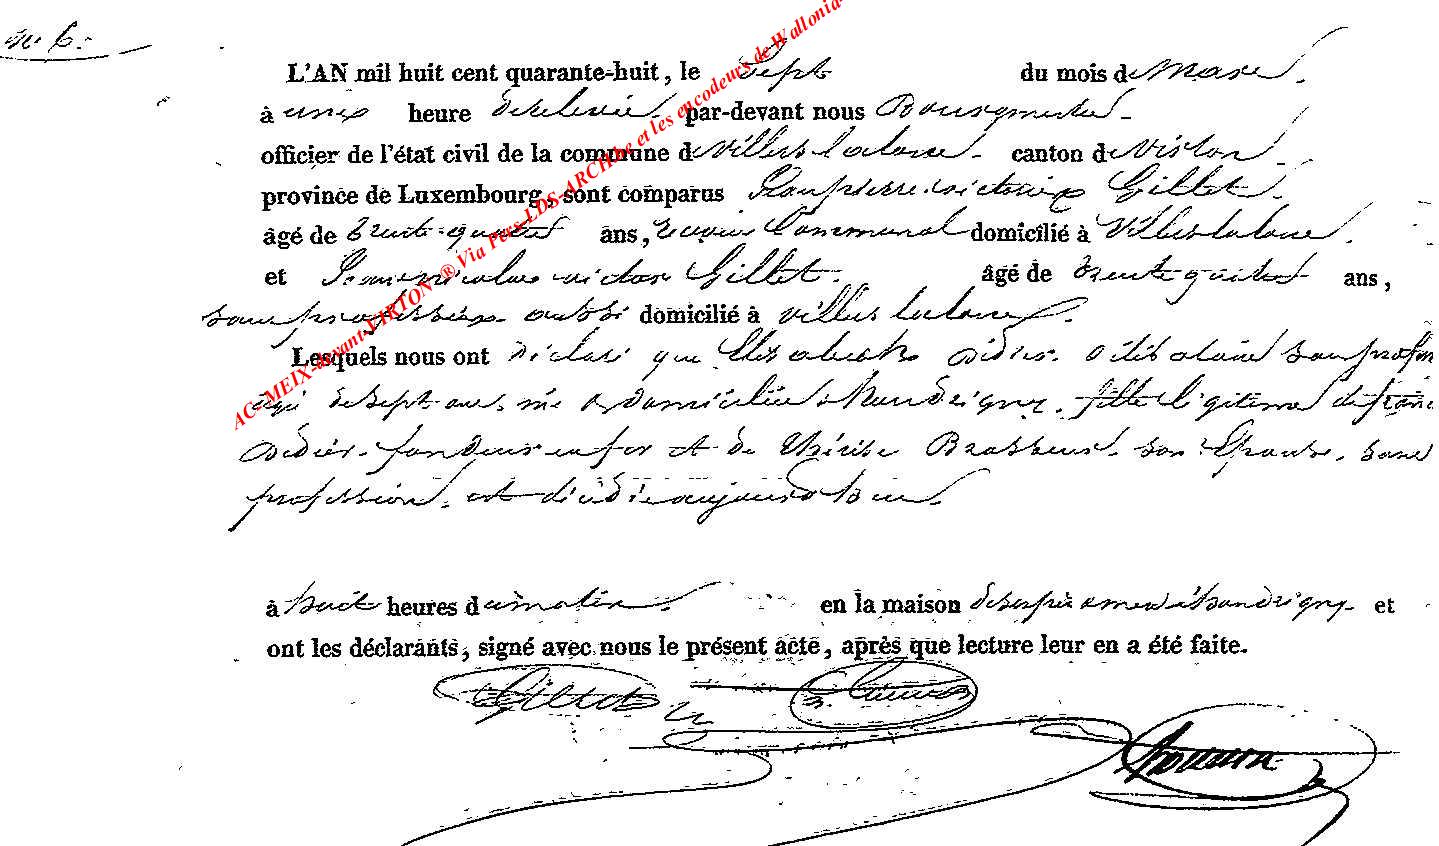 N° 6.
L'AN mil huit cent quarante-huit, le Sept du mois de Mars.
à une heure de relevée. par-devant nous Bourgmestre
officier de l'état civil de la commune de Villers laloue. canton de Virton.
province de Luxembourg, sont comparus Jean pierre victoire Gillet.
âgé de trente-quatre ans, Communal domicilié à Villers laloue.
et Jean nicolas victor Gillet. âgé de trente quatre ans,
sans profession. aussi domicilié à villers laloue.
Lesquels nous ont déclaré que Elisabeth Didier. célibataire sans profes
agé de sept ans, née & domiciliée à houdrigny. fille légitime de franc
Didier. fondeur en fer et de Thérèse Brasseur. son Epouse. sans
profession. est décédée aujourd'hui.
à huit heures du matin. en la maison de ses père & mere à houdrigny. et
ont les déclarants, signé avec nous le présent acte, après que lecture leur en a été faite.
Gillet
AC-MEIX-devant-VIRTON ® Via Pers-LDS-ARCH.be et les encodeurs de Wallonia-